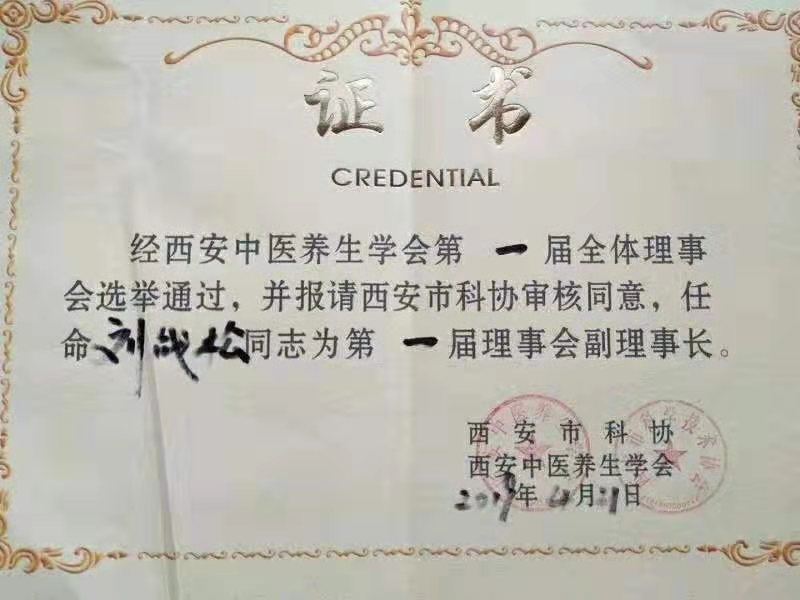 证书
CREDENTIAL
经西安中医养生学会第一届全体理事
会选举通过，并报请西安市科协审核同意，任
命刘战松同志为第一届理事会副理事长。
西安市科协
西安中医养生学会
2019年4月21日